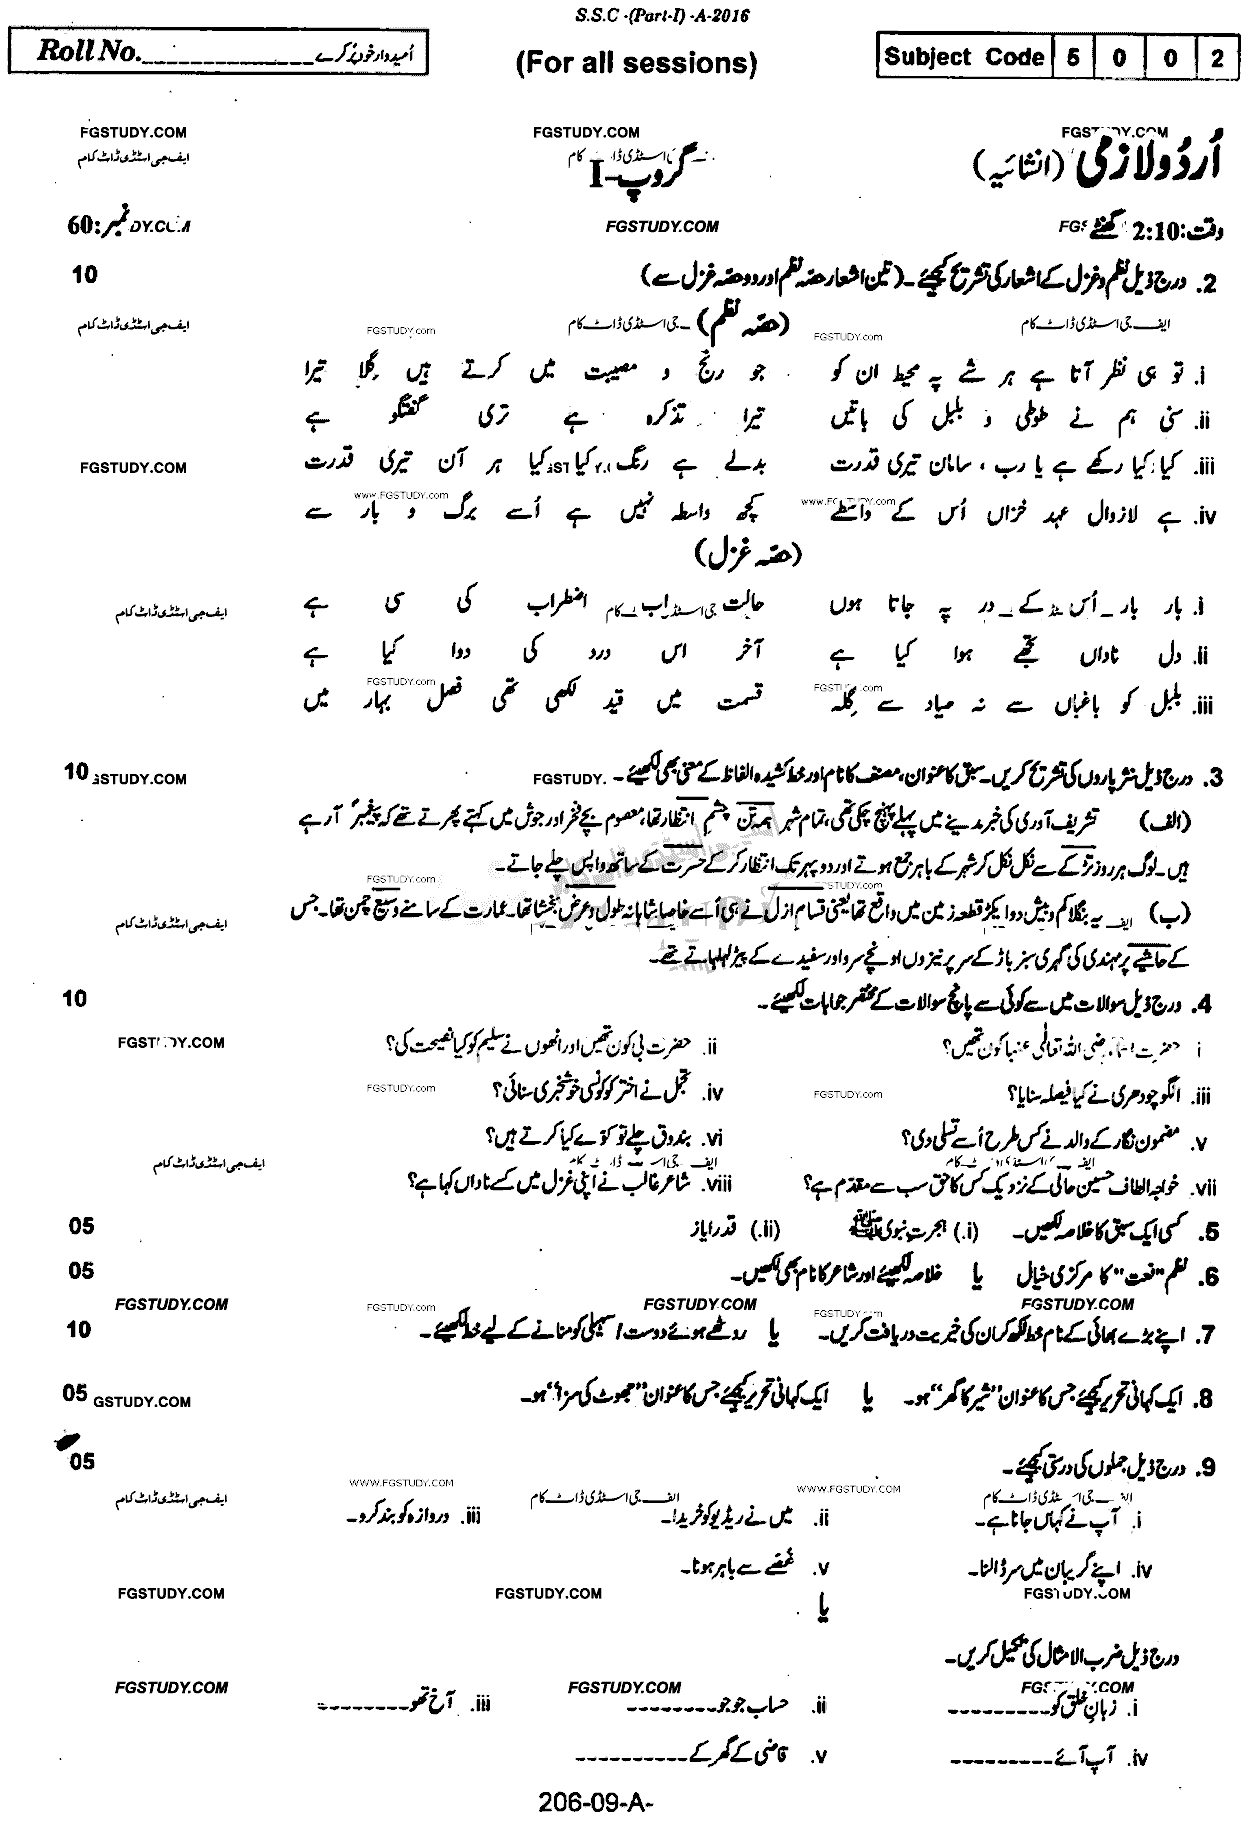 S.S.C -(Part-I) -A-2016
Roll No. ________________ اُمیدوار خود پُر کرے
(For all sessions)
Subject Code 5 0 0 2
FGSTUDY.COM FGSTUDY.COM
اُردو لازمی (انشائیہ) گروپ-I ایف جی اسٹڈی ڈاٹ کام
وقت: 2:10 گھنٹے FGSTUDY.COM نمبر: 60
2. درج ذیل نظم و غزل کے اشعار کی تشریح کیجئے۔ (تین اشعار حصّہ نظم اور دو حصّہ غزل سے) 10
(حصّہ نظم)
ایف جی اسٹڈی ڈاٹ کام FGSTUDY.com FGSTUDY.com ایف جی اسٹڈی ڈاٹ کام
i. تو ہی نظر آتا ہے ہر شے پہ محیط ان کو جو رنج و مصیبت میں کرتے ہیں گِلا تیرا
ii. سنی ہم نے طوطی و بلبل کی باتیں تیرا تذکرہ ہے تری گفتگو ہے
iii. کیا کیا رکھے ہے یا رب، سامان تیری قدرت بدلے ہے رنگ کیا کیا ہر آن تیری قدرت FGSTUDY.COM
iv. ہے لازوال عہد خزاں اُس کے واسطے کچھ واسطہ نہیں ہے اُسے برگ و بار سے
www.FGSTUDY.com
(حصّہ غزل)
i. بار بار اُس کے در پہ جاتا ہوں حالت اب اضطراب کی سی ہے ایف جی اسٹڈی ڈاٹ کام
ii. دل ناداں تجھے ہوا کیا ہے آخر اس درد کی دوا کیا ہے
FGSTUDY.com FGSTUDY.COM
iii. بلبل کو باغباں سے نہ صیاد سے گِلہ قسمت میں قید لکھی تھی فصل بہار میں
3. درج ذیل نثر پاروں کی تشریح کریں۔ سبق کا عنوان، مصنف کا نام اور خط کشیدہ الفاظ کے معنی بھی لکھیئے۔ 10
(الف) تشریف آوری کی خبر مدینے میں پہلے پہنچ چکی تھی، تمام شہر ہمہ تن چشمِ انتظار تھا، معصوم بچے فخر اور جوش میں کہتے پھرتے تھے کہ پیغمبرؐ آ رہے
ہیں۔ لوگ ہر روز تڑکے سے نکل نکل کر شہر کے باہر جمع ہوتے اور دوپہر تک انتظار کر کے حسرت کے ساتھ واپس چلے جاتے۔
FGSTUDY.com
(ب) یہ بنگلا کم و بیش دو ایکڑ قطعہ زمین میں واقع تھا یعنی قسام ازل نے ہی اُسے خاصا شاہانہ طول و عرض بخشا تھا۔ عمارت کے سامنے وسیع چمن تھا۔ جس ایف جی اسٹڈی ڈاٹ کام
کے حاشیے پر مہندی کی گہری سبز باڑ کے سر پر نیزوں اونچے سرو اور سفیدے کے پیڑ لہلہاتے تھے۔
4. درج ذیل سوالات میں سے کوئی سے پانچ سوالات کے مختصر جوابات لکھیئے۔ 10
i حضرت اسماء رضی اللہ تعالٰی عنہا کون تھیں؟ ii. حضرت بی کون تھیں اور انھوں نے سلیم کو کیا نصیحت کی؟
iii. الگو چودھری نے کیا فیصلہ سنایا؟ iv. تجمل نے اختر کو کونسی خوشخبری سنائی؟
FGSTUDY.com FGSTUDY.com
v. مضمون نگار کے والد نے کس طرح اُسے تسلی دی؟ vi. بندوق چلے تو کوّے کیا کرتے ہیں؟
ایف جی اسٹڈی ڈاٹ کام
vii. خواجہ الطاف حسین حالی کے نزدیک کس کا حق سب سے مقدم ہے؟ viii. شاعر غالب نے اپنی غزل میں کسے ناداں کہا ہے؟
5. کسی ایک سبق کا خلاصہ لکھیں۔ (i.) ہجرت نبوی ﷺ (ii.) قدر ایاز 05
6. نظم "نعت" کا مرکزی خیال یا خلاصہ لکھیئے اور شاعر کا نام بھی لکھیں۔ 05
FGSTUDY.COM FGSTUDY.com FGSTUDY.COM FGSTUDY.COM
7. اپنے بڑے بھائی کے نام خط لکھ کر ان کی خیریت دریافت کریں۔ یا روٹھے ہوئے دوست / سہیلی کو منانے کے لیے خط لکھیئے۔ 10
8. ایک کہانی تحریر کیجئے جس کا عنوان "شیر کا گھر" ہو۔ یا ایک کہانی تحریر کیجئے جس کا عنوان "جھوٹ کی سزا" ہو۔ 05
9. درج ذیل جملوں کی درستی کیجئے۔ 05
WWW.FGSTUDY.COM WWW.FGSTUDY.COM
ایف جی اسٹڈی ڈاٹ کام
i. آپ نے کہاں جانا ہے۔ ii. میں نے ریڈیو کو خریدا۔ iii. دروازہ کو بند کرو۔
iv. اپنے گریبان میں سر ڈالنا۔ v. غُصّے سے باہر ہونا۔
FGSTUDY.COM FGSTUDY.COM
یا
درج ذیل ضرب الامثال کی تکمیل کریں۔
FGSTUDY.COM FGSTUDY.COM
i. زبانِ خلق کو --------- ii. حساب جو جو --------- iii. آخ تھو ---------
iv. آپ آئے --------- v. قاضی کے گھر کے ---------
206-09-A-